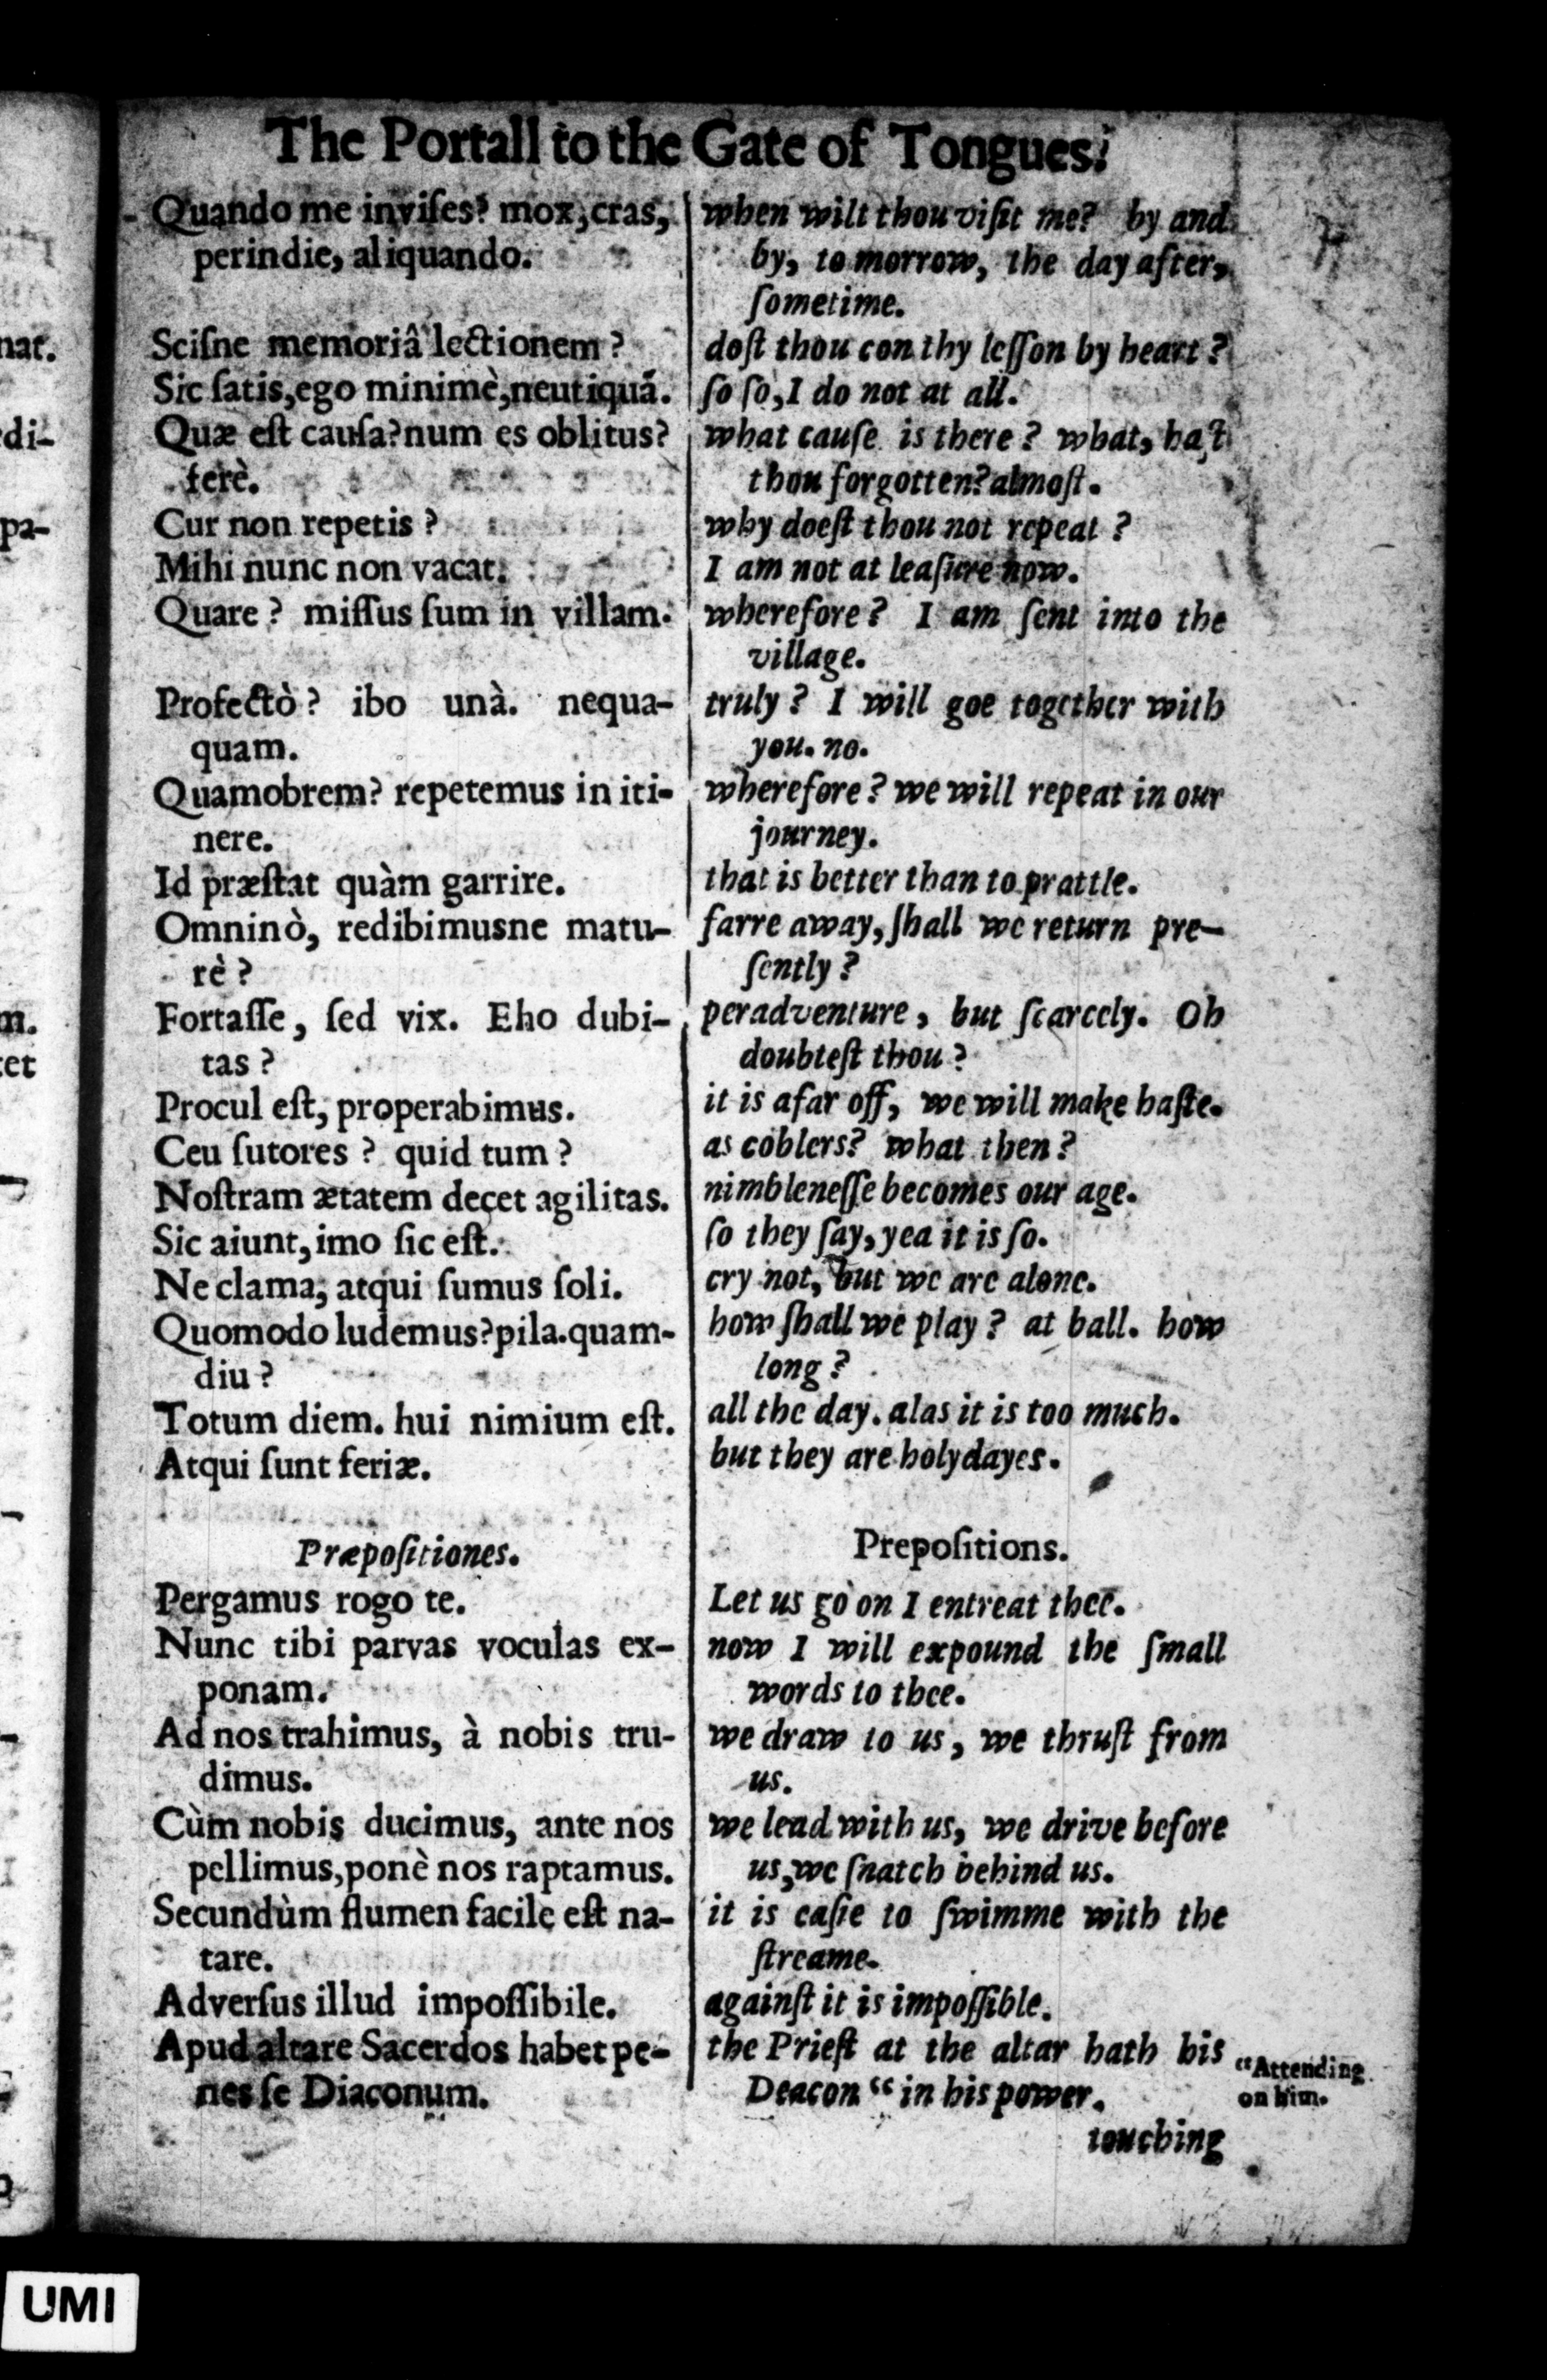 The Portall to the Gate of Tongues.
Quando me inviſes? mox, cras,
perindie, aliquando.
Sciſne memoriâ lectionem?
Sic ſatis, ego minimè, neutiquã.
Quæ eſt cauſa? num es oblitus?
ferè.
Cur non repetis?
Mihi nunc non vacat.
Quare? miſſus ſum in villam.
Profectò? ibo unà. nequa-
quam.
Quamobrem? repetemus in iti-
nere.
Id præſtat quàm garrire.
Omninò, redibimusne matu-
rè?
Fortaſſe, ſed vix. Eho dubi-
tas?
Procul eſt, properabimus.
Ceu ſutores? quid tum?
Noſtram ætatem decet agilitas.
Sic aiunt, imo ſic eſt.
Ne clama, atqui ſumus ſoli.
Quomodo ludemus? pila. quam-
diu?
Totum diem. hui nimium eſt.
Atqui ſunt feriæ.
Præpoſitiones.
Pergamus rogo te.
Nunc tibi parvas voculas ex-
ponam.
Ad nos trahimus, à nobis tru-
dimus.
Cùm nobis ducimus, ante nos
pellimus, ponè nos raptamus.
Secundùm flumen facile eſt na-
tare.
Adverſus illud impoſſibile.
Apud altare Sacerdos habet pe-
nes ſe Diaconum.
when wilt thou viſit me? by and
by, to morrow, the day after,
ſometime.
doſt thou con thy leſſon by heart?
ſo ſo, I do not at all.
what cauſe is there? what, haſt
thou forgotten? almoſt.
why doeſt thou not repeat?
I am not at leaſure now.
wherefore? I am ſent into the
village.
truly? I will goe together with
you. no.
wherefore? we will repeat in our
journey.
that is better than to prattle.
farre away, ſhall we return pre-
ſently?
peradventure, but ſcarcely. Oh
doubteſt thou?
it is afar off, we will make haſte.
as coblers? what then?
nimbleneſſe becomes our age.
ſo they ſay, yea it is ſo.
cry not, but we are alone.
how ſhall we play? at ball. how
long?
all the day. alas it is too much.
but they are holydayes.
Prepoſitions.
Let us go on I entreat thee.
now I will expound the ſmall
words to thee.
we draw to us, we thruſt from
us.
we lead with us, we drive before
us, we ſnatch behind us.
it is eaſie to ſwimme with the
ſtreame.
againſt it is impoſſible.
the Prieſt at the altar hath his
Deacon “ in his power.
“Attending
on him.
touching
nat.
di-
pa-
m.
et
UMI